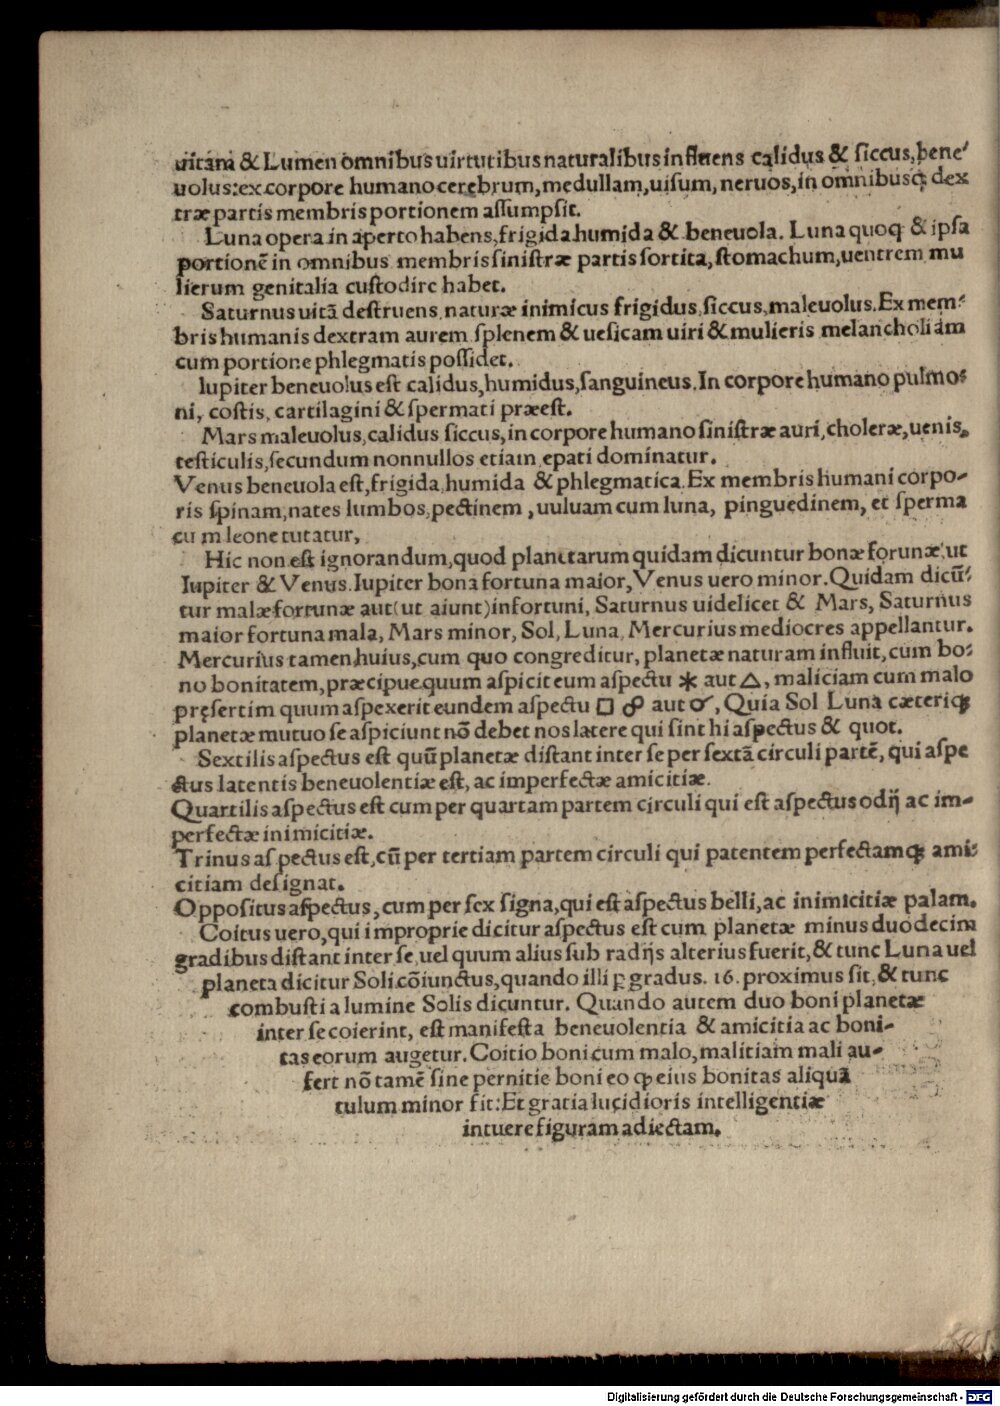 uitam & Lumen omnibus uirtutibus naturalibus influens calidus & ſiccus, bene⸗
uolus: ex corpore humano cerebrum, medullam, uiſum, neruos, in omnibusq; dex
træ partis membris portionem aſſumpſit.
Luna opera in aperto habens, frigida humida & beneuola. Luna quoq; & ipſa
portionē in omnibus membris ſiniſtræ partis ſortita, ſtomachum, uentrem mu
lierum genitalia cuſtodire habet.
Saturnus uitā deſtruens, naturæ inimicus frigidus, ſiccus, maleuolus. Ex mem⸗
bris humanis dextram aurem ſplenem & ueſicam uiri & mulieris melancholiam
cum portione phlegmatis poſſidet.
Iupiter beneuolus eſt calidus, humidus, ſanguineus. In corpore humano pulmo⸗
ni, coſtis, cartilagini & ſpermati præeſt.
Mars maleuolus, calidus ſiccus, in corpore humano ſiniſtræ auri, choleræ, uenis,
teſticulis, ſecundum nonnullos etiam epati dominatur.
Venus beneuola eſt, frigida, humida & phlegmatica. Ex membris humani corpo⸗
ris ſpinam, nates lumbos, pectinem, uuluam cum luna, pinguedinem, et ſperma
cu m leone tutatur,
Hic non eſt ignorandum, quod planetarum quidam dicuntur bonæ forunæ, ut
Iupiter & Venus. Iupiter bona fortuna maior, Venus uero minor. Quidam dicū⸗
tur malæ fortunæ aut (ut aiunt) infortuni, Saturnus uidelicet & Mars, Saturnus
maior fortuna mala, Mars minor, Sol, Luna, Mercurius mediocres appellantur.
Mercurius tamen huius, cum quo congreditur, planetæ naturam influit, cum bo⸗
no bonitatem, præcipue quum aſpicit eum aſpectu ⚹ aut △, maliciam cum malo
pręſertim quum aſpexerit eundem aſpectu □ ☍ aut ☌, Quia Sol Luna cæteriq;
planetæ mutuo ſe aſpiciunt nō debet nos latere qui ſint hi aſpectus & quot.
Sextilis aſpectus eſt quū planetæ diſtant inter ſe per ſextā circuli partē, qui aſpe
ctus latentis beneuolentiæ eſt, ac imperfectæ amicitiæ.
Quartilis aſpectus eſt cum per quartam partem circuli qui eſt aſpectus odij ac im⸗
perfectæ inimicitiæ.
Trinus aſ pectus eſt, cū per tertiam partem circuli qui patentem perfectamq; ami⸗
citiam deſignat.
Oppoſitus aſpectus, cum per ſex ſigna, qui eſt aſpectus belli, ac inimicitiæ palam.
Coitus uero, qui improprie dicitur aſpectus eſt cum planetæ minus duodecim
gradibus diſtant inter ſe, uel quum alius ſub radijs alterius fuerit, & tunc Luna uel
planeta dicitur Soli cōiunctus, quando illi ꝑ gradus. 16. proximus ſit, & tunc
combuſti a lumine Solis dicuntur. Quando autem duo boni planetæ
inter ſe coierint, eſt manifeſta beneuolentia & amicitia ac boni⸗
tas eorum augetur. Coitio boni cum malo, malitiam mali au⸗
fert nō tamē ſine pernitie boni eo ꝙ eius bonitas aliquā
tulum minor fit: Et gratia lucidioris intelligentiæ
intuere figuram adiectam.
Digitalisierung gefördert durch die Deutsche Forschungsgemeinschaft - DFG